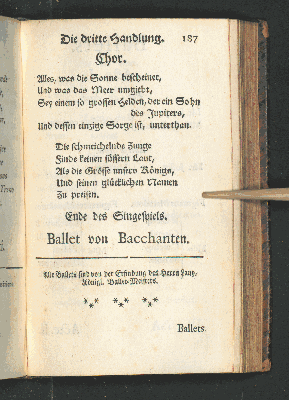 Die dritte Handlung. 187
Chor.
Alles, was die Sonne bescheinet,
Und was das Meer umgiebt,
Sey einem so grossen Helden, der ein Sohn
des Jupiters,
Und dessen einzige Sorge ist, unterthan.
Die schmeichelnde Zunge
Finde keinen süssern Laut,
Als die Grösse unsers Königs,
Und seinen glücklichen Namen
Zu preisen.
Ende des Singespiels.
Ballet von Bacchanten.
Alle Ballets sind von der Erfindung des Herrn Lany,
Königl. Ballet-Meisters.
Ballets